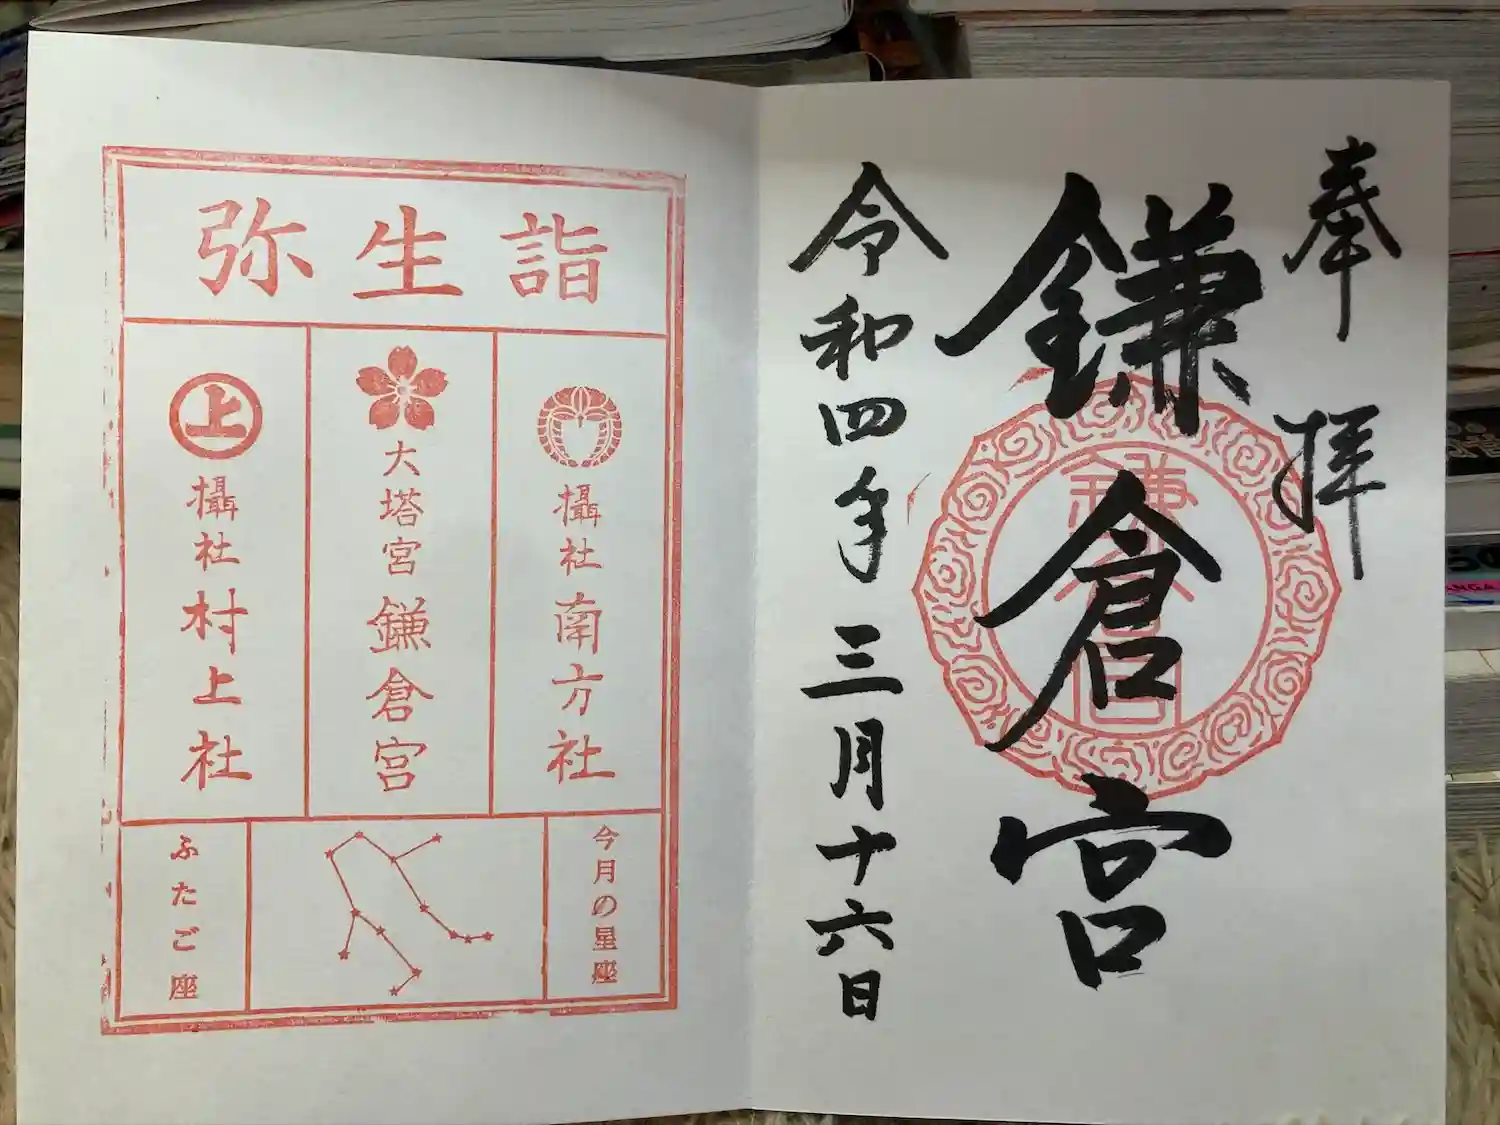 奉拝
鎌倉宮
令和四年三月十六日
鎌倉宮
弥生詣
攝社南方社
大塔宮鎌倉宮
上
攝社村上社
今月の星座
ふたご座